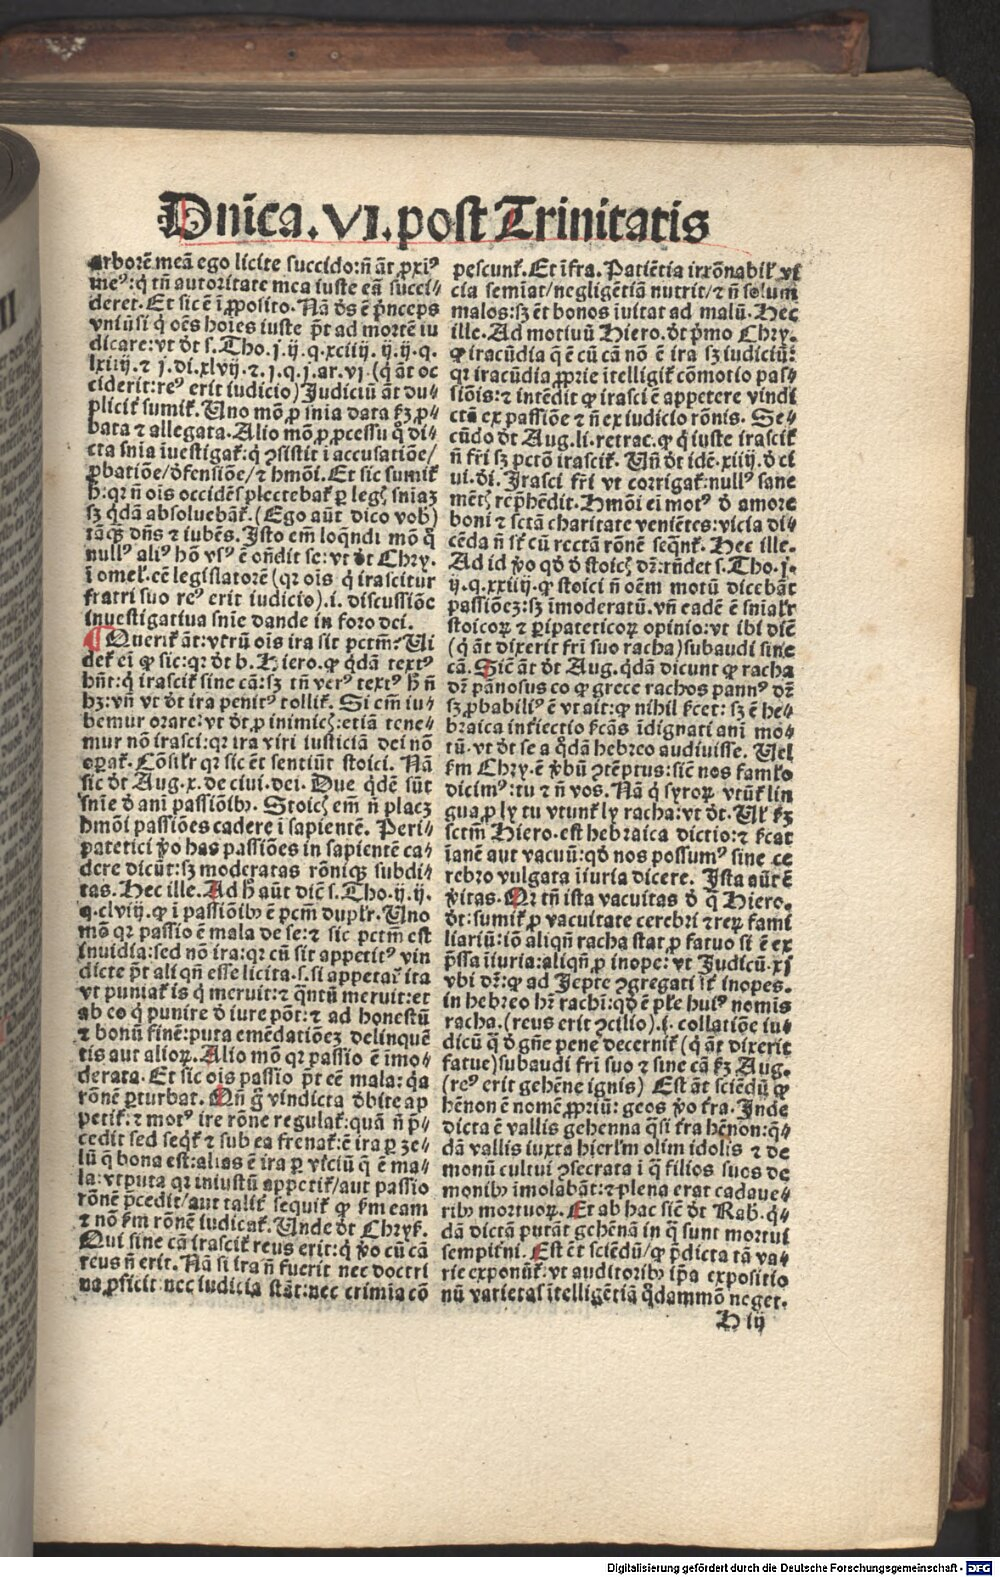 Dn̄ica.VI.post Trinitatis
arborē meā ego licite succido:n̄ āt ꝓxiꝰ
meꝰ:q̇ tn̄ autoritate mea iuste eā succi⸗
deret. Et sic ē i ꝓposito. Nā dn̄s ē p̄nceps
vniūsi q̇ oēs hoīes iuste p̄t ad mortē iu
dicare:vt dt s. Tho. j. ij. q. xciiij. ij. ij. q.
lxiiij. ⁊ j. di. xlvij. ⁊. j. q. j. ar. vj. (q̇ āt oc
ciderit:reꝰ erit iudicio) Judiciū āt du⸗
plicit̄ sumit̄. Uno mō ꝓ sn̄ia data fm̄ ꝓ⸗
bata ⁊ allegata. Alio mō ꝓ ꝓcessu q̊ di⸗
cta sn̄ia īuestigat̄:q̇ ꝯsistit i accusatiōe/
ꝓbatiōe/dfensiōe/⁊ hmōi. Et sic sumit̄
h̄:qr n̄ oīs occidēs plectebat̄ ꝑ legꝭ sn̄iaꝫ
sꝫ q̇dā absoluebāt̄. (Ego aūt dico vob)
tāꝙ dn̄s ⁊ iubēs. Isto em̄ loqn̄di mō q̇
nullꝰ aliꝰ hō vsꝰ ē on̄dit se:vt dt Chry.
ī omel. cē legislatorē (qr oīs q̇ irascitur
fratri suo reꝰ erit iudicio). i. discussiōe
inuestigatiua sn̄ie dande in foro dei.
¶ Querit̄ āt:vtrū oīs ira sit pctm̄: Ui
det̄ ei ꝙ sic:qr dt b. Hiero. ꝙ q̇dā textꝰ
hn̄t:q̇ irascit̄ sine cā:sꝫ tn̄ verꝰ textꝰ h n̄
hꝫ:vn̄ vt dt ira penitꝰ tollit̄. Si em̄ iu⸗
bemur orare:vt dt ꝓ inimicꝭ:etiā tene⸗
mur nō irasci:qr ira viri iusticiā dei nō
oꝑat̄. Cōsilr qr sic ēt sentiūt stoici. Nā
sic dt Aug. x. de ciui. dei. Due q̇dē sūt
sn̄ie d ani passiōibꝰ. Stoicꝭ em̄ n̄ placꝫ
hmōi passiōes cadere i sapientē. Peri⸗
patetici ꝟo has passiōes in sapientē ca⸗
dere dicūt:sꝫ moderatas rōniqꝫ subdi⸗
tas. Hec ille. Ad h aūt dic̄ s. Tho. ij. ij.
q. clviij. ꝙ i passiōibꝰ ē pcm̄ duplr. Uno
mō qr passio ē mala de se:⁊ sic pctm̄ est
inuidia:sed nō ira:qr cū sit appetitꝰ vin
dicte p̄t aliqn̄ esse licita. s. si appetat̄ ita
vt puniat̄ is q̇ meruit:⁊ q̄ntū meruit:et
ab eo q̇ punire d iure pōt:⁊ ad honestū
⁊ bonū finē:puta emēdatiōeꝫ delinquē
tis aut alioꝝ. Alio mō qr passio ē īmo⸗
derata. Et sic oīs passio p̄t eē mala: q̇a
rōnē ꝑturbat. Qn̄ g̊ vindicta dbite ap
petit̄:⁊ motꝰ ire rōne regulat̄:quā n̄ p̄⸗
cedit sed seqt̄ ⁊ sub ea frenat̄:ē ira ꝑ ze⸗
lū q̄ bona est:alias ē ira ꝑ viciū q̄ ē ma⸗
la:vtputa qr iniustū appetit̄/aut passio
rōnē p̄cedit/aut talit̄ sequit̄ ꝙ fm eam
⁊ nō fm rōnē iudicat̄. Unde dt Chrys.
Qui sine cā irascit̄ reus erit:q̇ ꝟo cū cā
reus n̄ erit. Nā si ira n̄ fuerit nec doctri
na ꝓficit nec iudicia stāt:nec crimia cō
pescunt̄. Et īfra. Patiētia irrōnabil̄ vi
cia semīat/negligētiā nutrit/⁊ n̄ solum
malos:sꝫ ēt bonos īuitat ad malū. Hec
ille. Ad motiuū Hiero. dt p̄mo Chry.
ꝙ iracūdia q̄ ē cū cā nō ē ira sꝫ iudiciū:
qr iracūdia ꝓprie ītelligit̄ cōmotio pas⸗
siōis:⁊ intēdit ꝙ irasci ē appetere vindi
ctā ex passiōe ⁊ n̄ ex iudicio rōnis. Se⸗
cūdo dt Aug. li. retrac. ꝙ q̇ iuste irascit̄
n̄ fri sꝫ pctō irascit̄. Un̄ dt idē. xiiij. d ci
ui. di. Irasci fri vt corrigat̄:nullꝰ sane
mētꝭ rep̄hēdit. Hmōi ei motꝰ d amore
boni ⁊ sctā charitate veniētes:vicia di⸗
cēda n̄ st̄ cū rectā rōnē seqn̄t̄. Hec ille.
Ad id ꝟo qd d stoicꝭ dr:rn̄det s. Tho. j.
ij. q. xxiiij. ꝙ stoici n̄ oēm motū dicebāt
passiōeꝫ:sꝫ īmoderatū. vn̄ eadē ē sn̄ialr
stoicoꝝ ⁊ ꝑipateticoꝝ opinio:vt ibi dic̄
(q̇ āt dixerit fri suo racha) subaudi sine
cā. Sic̄ āt dt Aug. q̇dā dicunt ꝙ racha
dr pānosus eo ꝙ grece rachos pannꝰ dr
sꝫ ꝓbabiliꝰ ē vt ait:ꝙ nihil sc̄et: sꝫ ē he⸗
braica interiectio sc̄ās īdignati ani mo⸗
tū. vt dt se a q̇dā hebreo audiuisse. Uel
fm Chry. ē ꝟbū ꝯtēptus:sic̄ nos famlo
dicimꝰ:tu ⁊ n̄ vos. Nā q̇ syroꝝ vtūt̄ lin
gua ꝓ ly tu vtunt̄ ly racha:vt dt. Ul̄ fm
sctm̄ Hiero. est hebraica dictio:⁊ sc̄at
īanē aut vacuū:qd nos possumꝰ sine ce
rebro vulgata iiuria dicere. Ista aūt ē
ꝟitas. Qr tn̄ ista vacuitas d q̄ Hiero.
dt:sumit̄ ꝓ vacuitate cerebri ⁊ reꝝ fami
liariū:iō aliqn̄ racha stat ꝓ fatuo si ē ex
p̄ssa iiuria:aliqn̄ ꝓ inope: vt Judicū. xj
vbi dr:ꝙ ad Jepte ꝯgregati st̄ inopes.
in hebreo hr rachī:qd ē pl̄e huiꝰ nomīs
racha. (reus erit ꝯcilio). i. collatiōe iu⸗
dicū q̄ d gn̄e pene decernit̄ (q̇ āt dixerit
fatue) subaudi fri suo ⁊ sine cā fm Aug.
(reꝰ erit gehēne ignis) Est āt sciēdū ꝙ
hēnon ē nomē ꝓpriū: geos ꝟo t̄ra. Inde
dicta ē vallis gehenna q̄si t̄ra hēnon:q̄⸗
dā vallis iuxta hierlm̄ olim idolis ⁊ de
monū cultui ꝯsecrata i q̄ filios suos de
monibꝰ imolabāt:⁊ plena erat cadaue⸗
ribꝰ mortuoꝝ. Et ab hac sic̄ dt Rab. q̇⸗
dā dictā putāt gehēnā in q̄ sunt mortui
sempit̄ni. Est ēt sciēdū/ꝙ p̄dicta tā va⸗
rie exponūt̄:vt auditoribꝰ ip̄a expositio
nū varietas ītelligētiā q̊dammō neget.
H iij
Digitalisierung gefördert durch die Deutsche Forschungsgemeinschaft - DFG